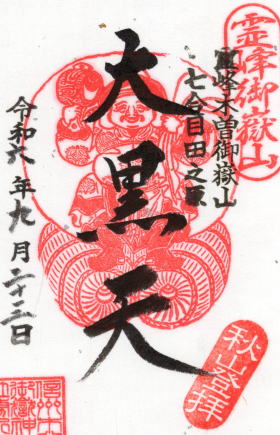 霊峰御嶽山
霊峰木曽御嶽山
七合目田之原
大黒天
令和六年九月二十三日
秋山登拝